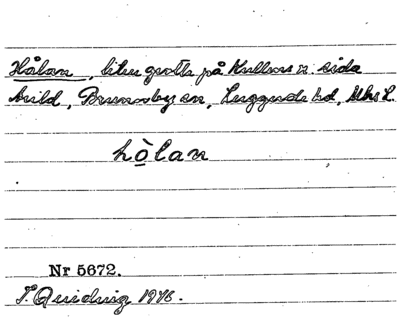 Hålan, liten grotta på Kullens n. sida
Arild, Brunnby sn, Luggude hd, Mhs l.
hòlan
Nr 5672.
T. Quidvig 1946.